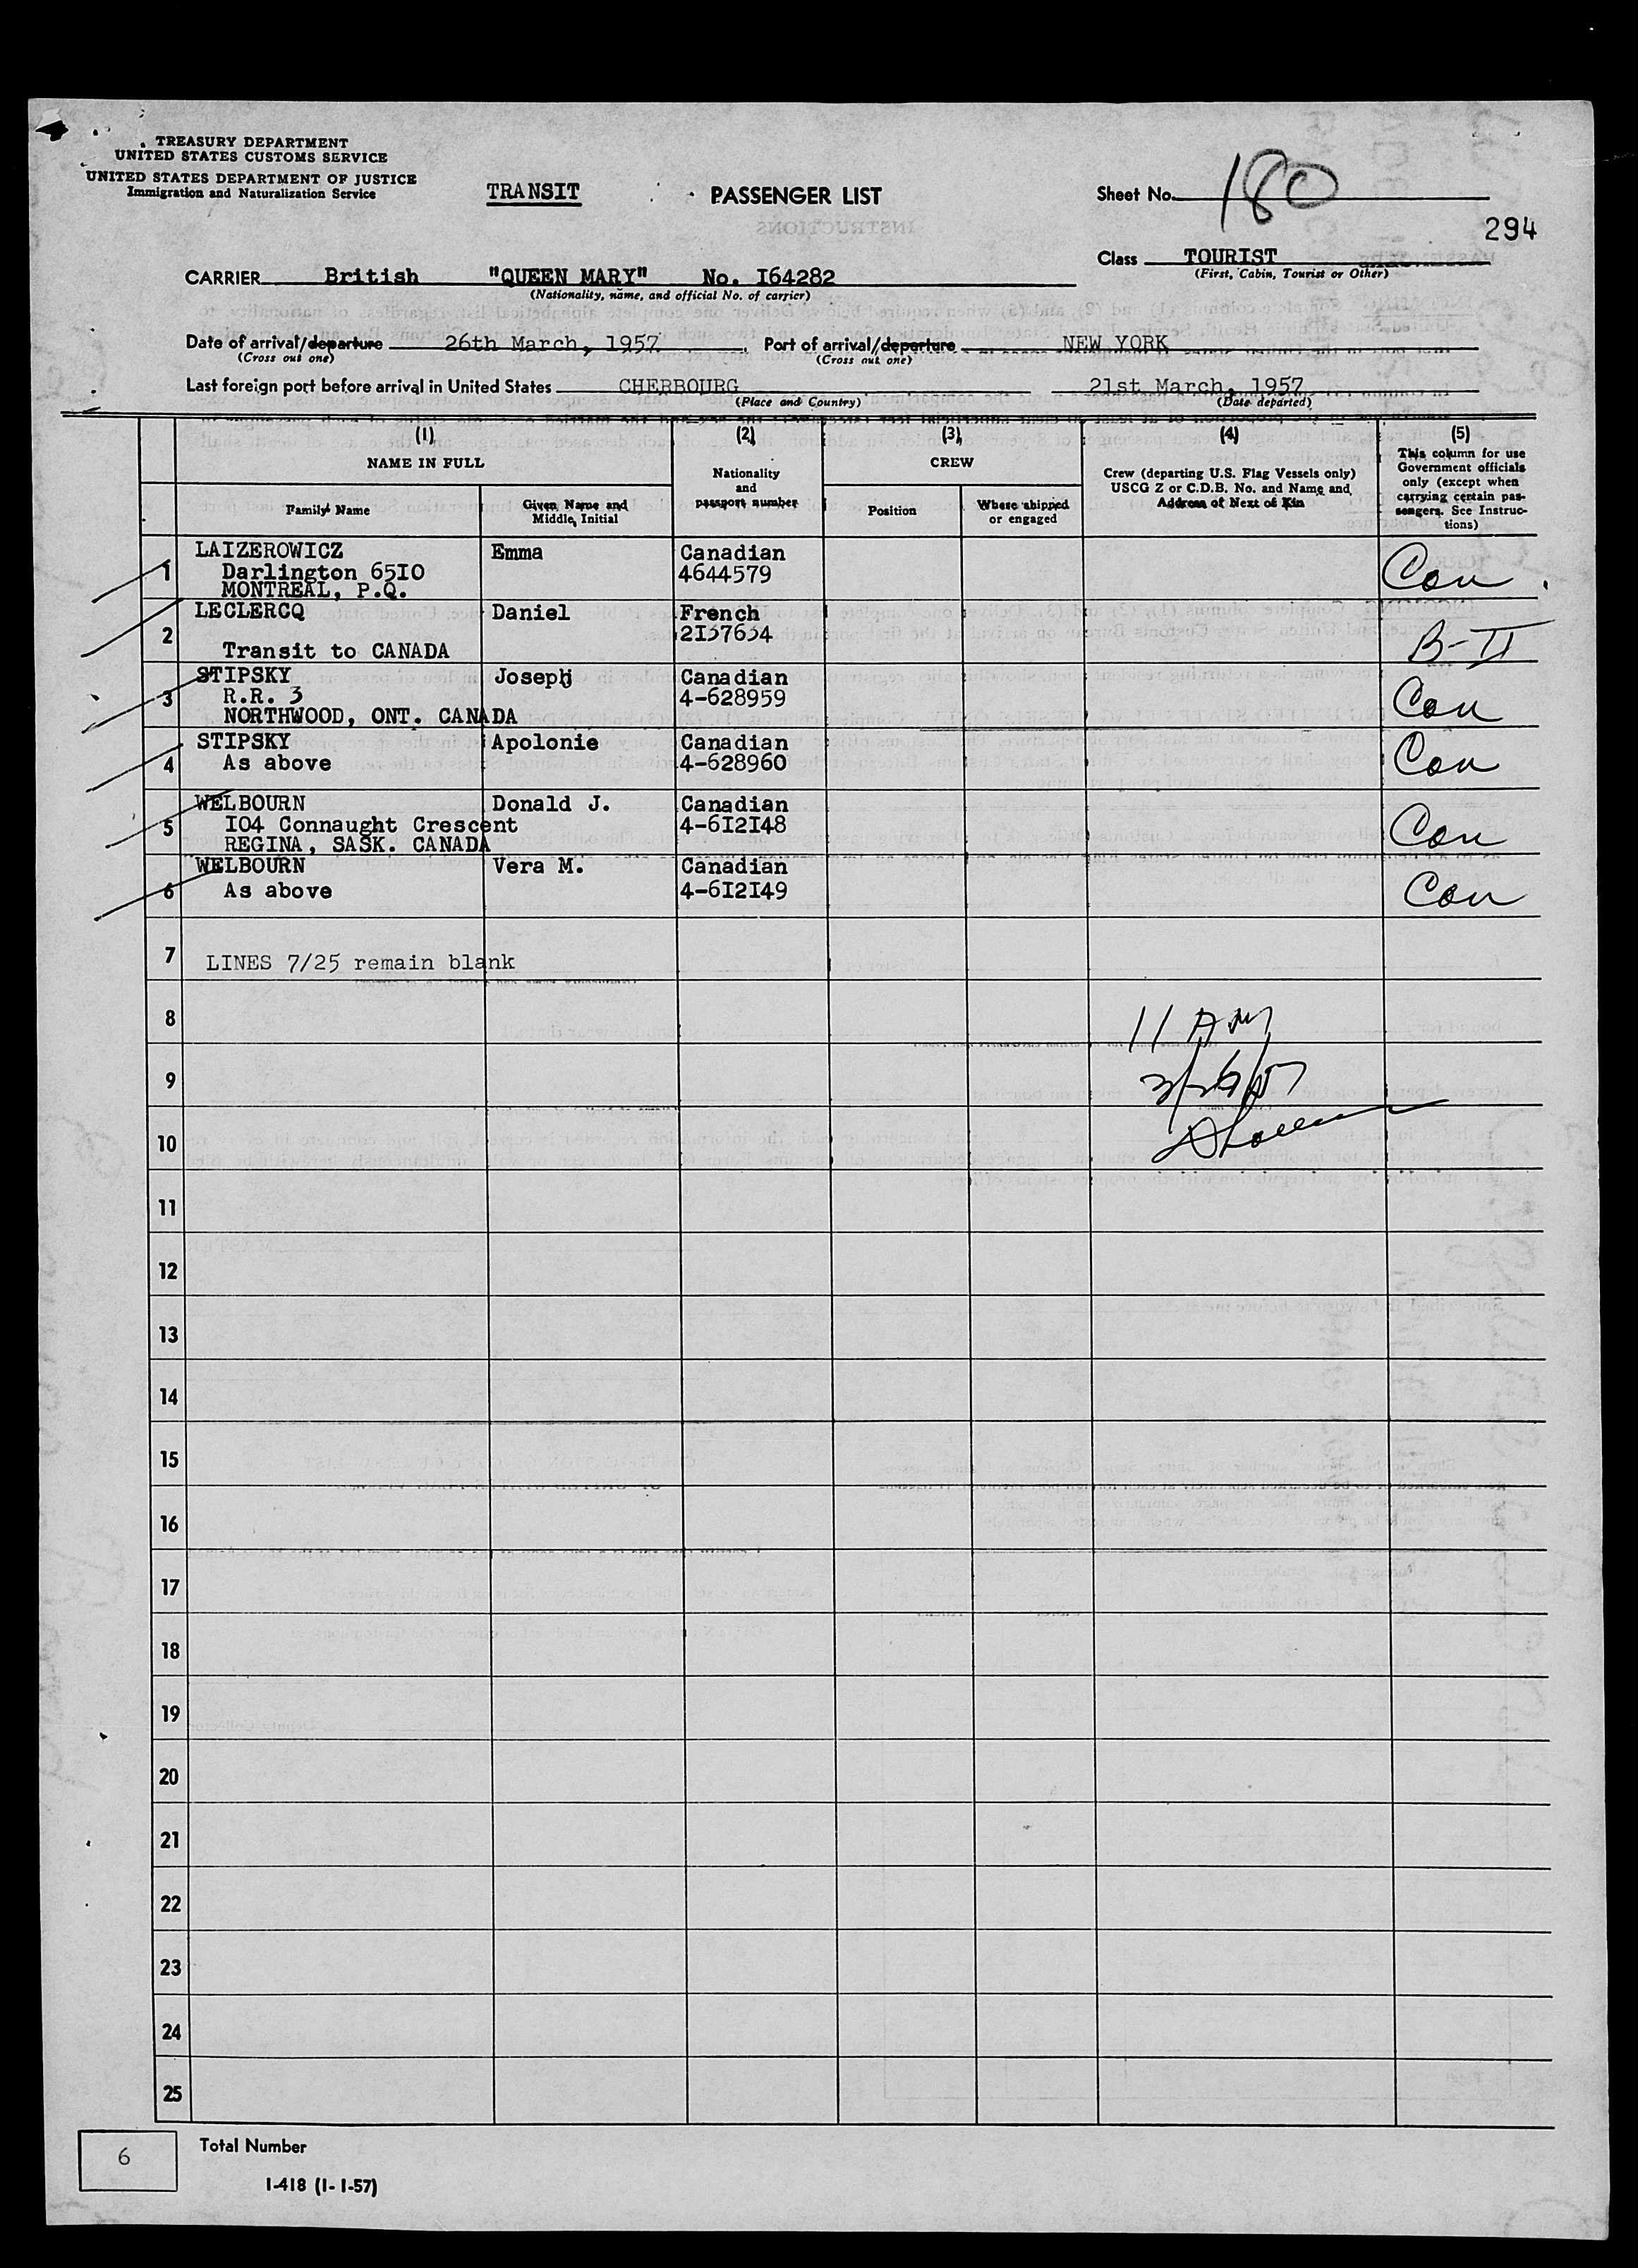 TREASURY DEPARTMENT
UNITED STATES CUSTOMS SERVICE
UNITED STATES DEPARTMENT OF JUSTICE
Immigration and Naturalization Service
TRANSIT
PASSENGER LIST
Sheet No. 180
294
Class TOURIST
(First, Cabin, Tourist or Other)
CARRIER British "QUEEN MARY" No. I64282
(Nationality, name, and official No. of carrier)
Date of arrival/departure 26th March, 1957. Port of arrival/departure NEW YORK
(Cross out one) (Cross out one)
Last foreign port before arrival in United States CHERBOURG 21st March, 1957
(Place and Country) (Date departed)
(1) (2) (3) (4) (5)
NAME IN FULL
Family Name
Given Name and
Middle Initial
Nationality
and
passport number
CREW
Position
Where shipped
or engaged
Crew (departing U.S. Flag Vessels only)
USCG Z or C.D.B. No. and Name and
Address of Next of Kin
This column for use
Government officials
only (except when
carrying certain pas-
sengers. See Instruc-
tions)
1 LAIZEROWICZ Emma Canadian Con
Darlington 65I0 4644579
MONTREAL, P.Q.
2 LECLERCQ Daniel French B-II
2I37634
Transit to CANADA
3 STIPSKY Joseph Canadian Con
R.R. 3 4-628959
NORTHWOOD, ONT. CANADA
4 STIPSKY Apolonie Canadian Con
As above 4-628960
5 WELBOURN Donald J. Canadian Con
I04 Connaught Crescent 4-6I2I48
REGINA, SASK. CANADA
6 WELBOURN Vera M. Canadian Con
As above 4-6I2I49
7 LINES 7/25 remain blank
8 11 AM
9 3/26/57
10
11
12
13
14
15
16
17
18
19
20
21
22
23
24
25
6 Total Number
I-418 (1-1-57)